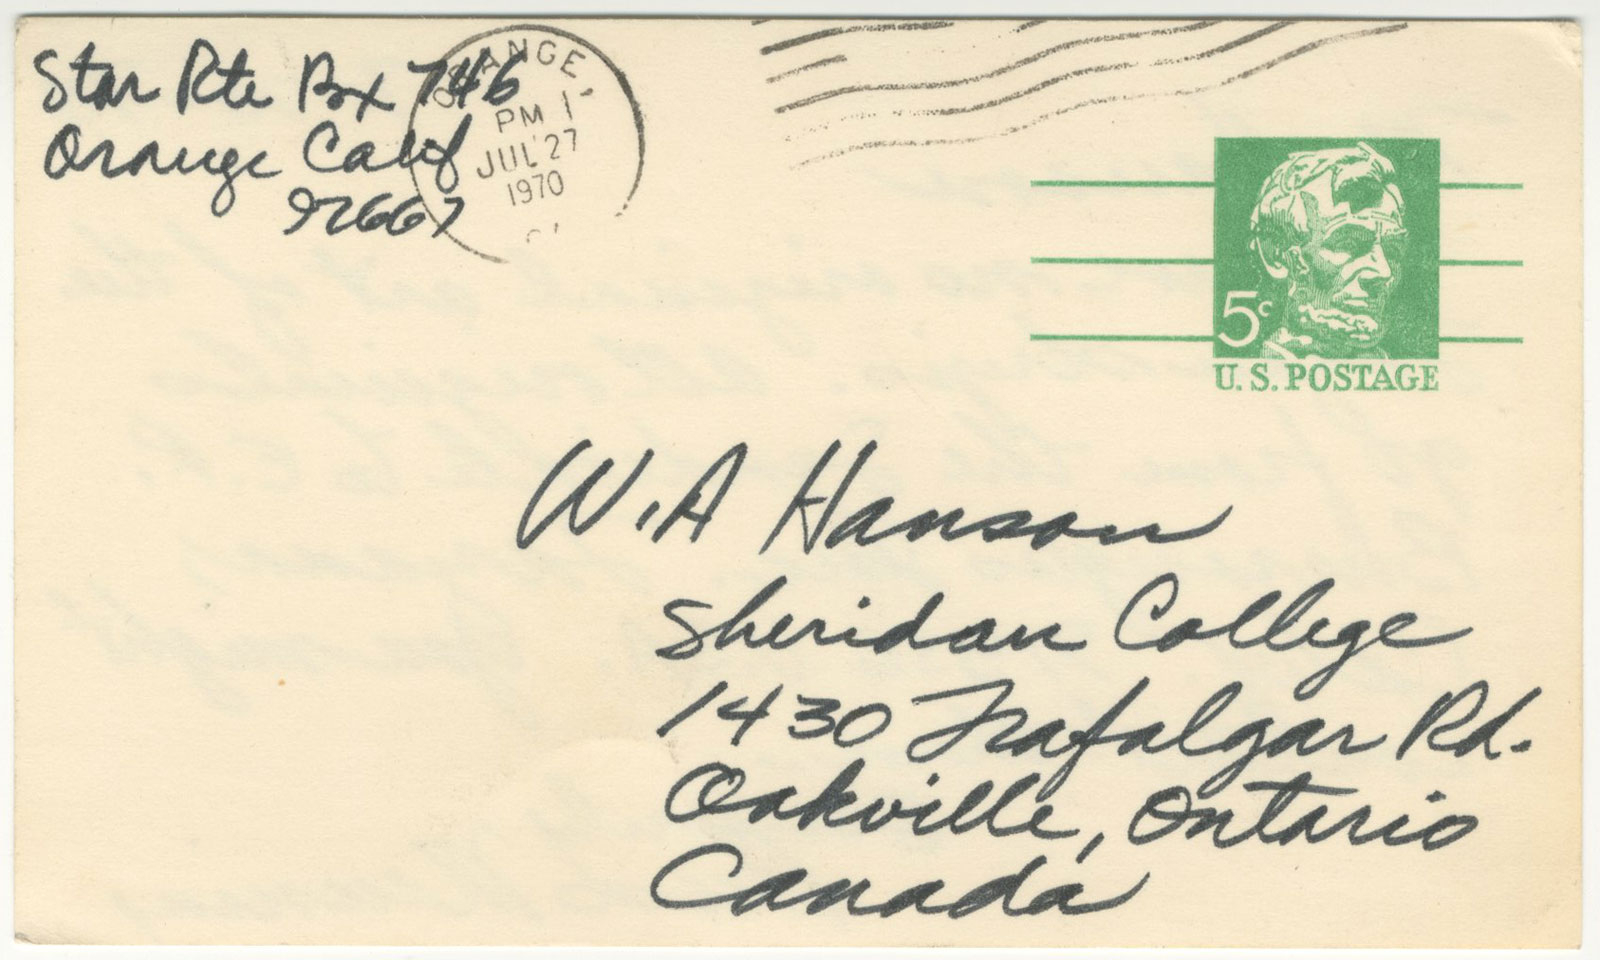 Star Rte Bx 746
Orange Calif
92667
ORANGE,
PM 1
JUL 27
1970
5c
U.S. POSTAGE
W.A Hanson
Sheridan College
1430 Trafalgar Rd.
Oakville, Ontario
Canada